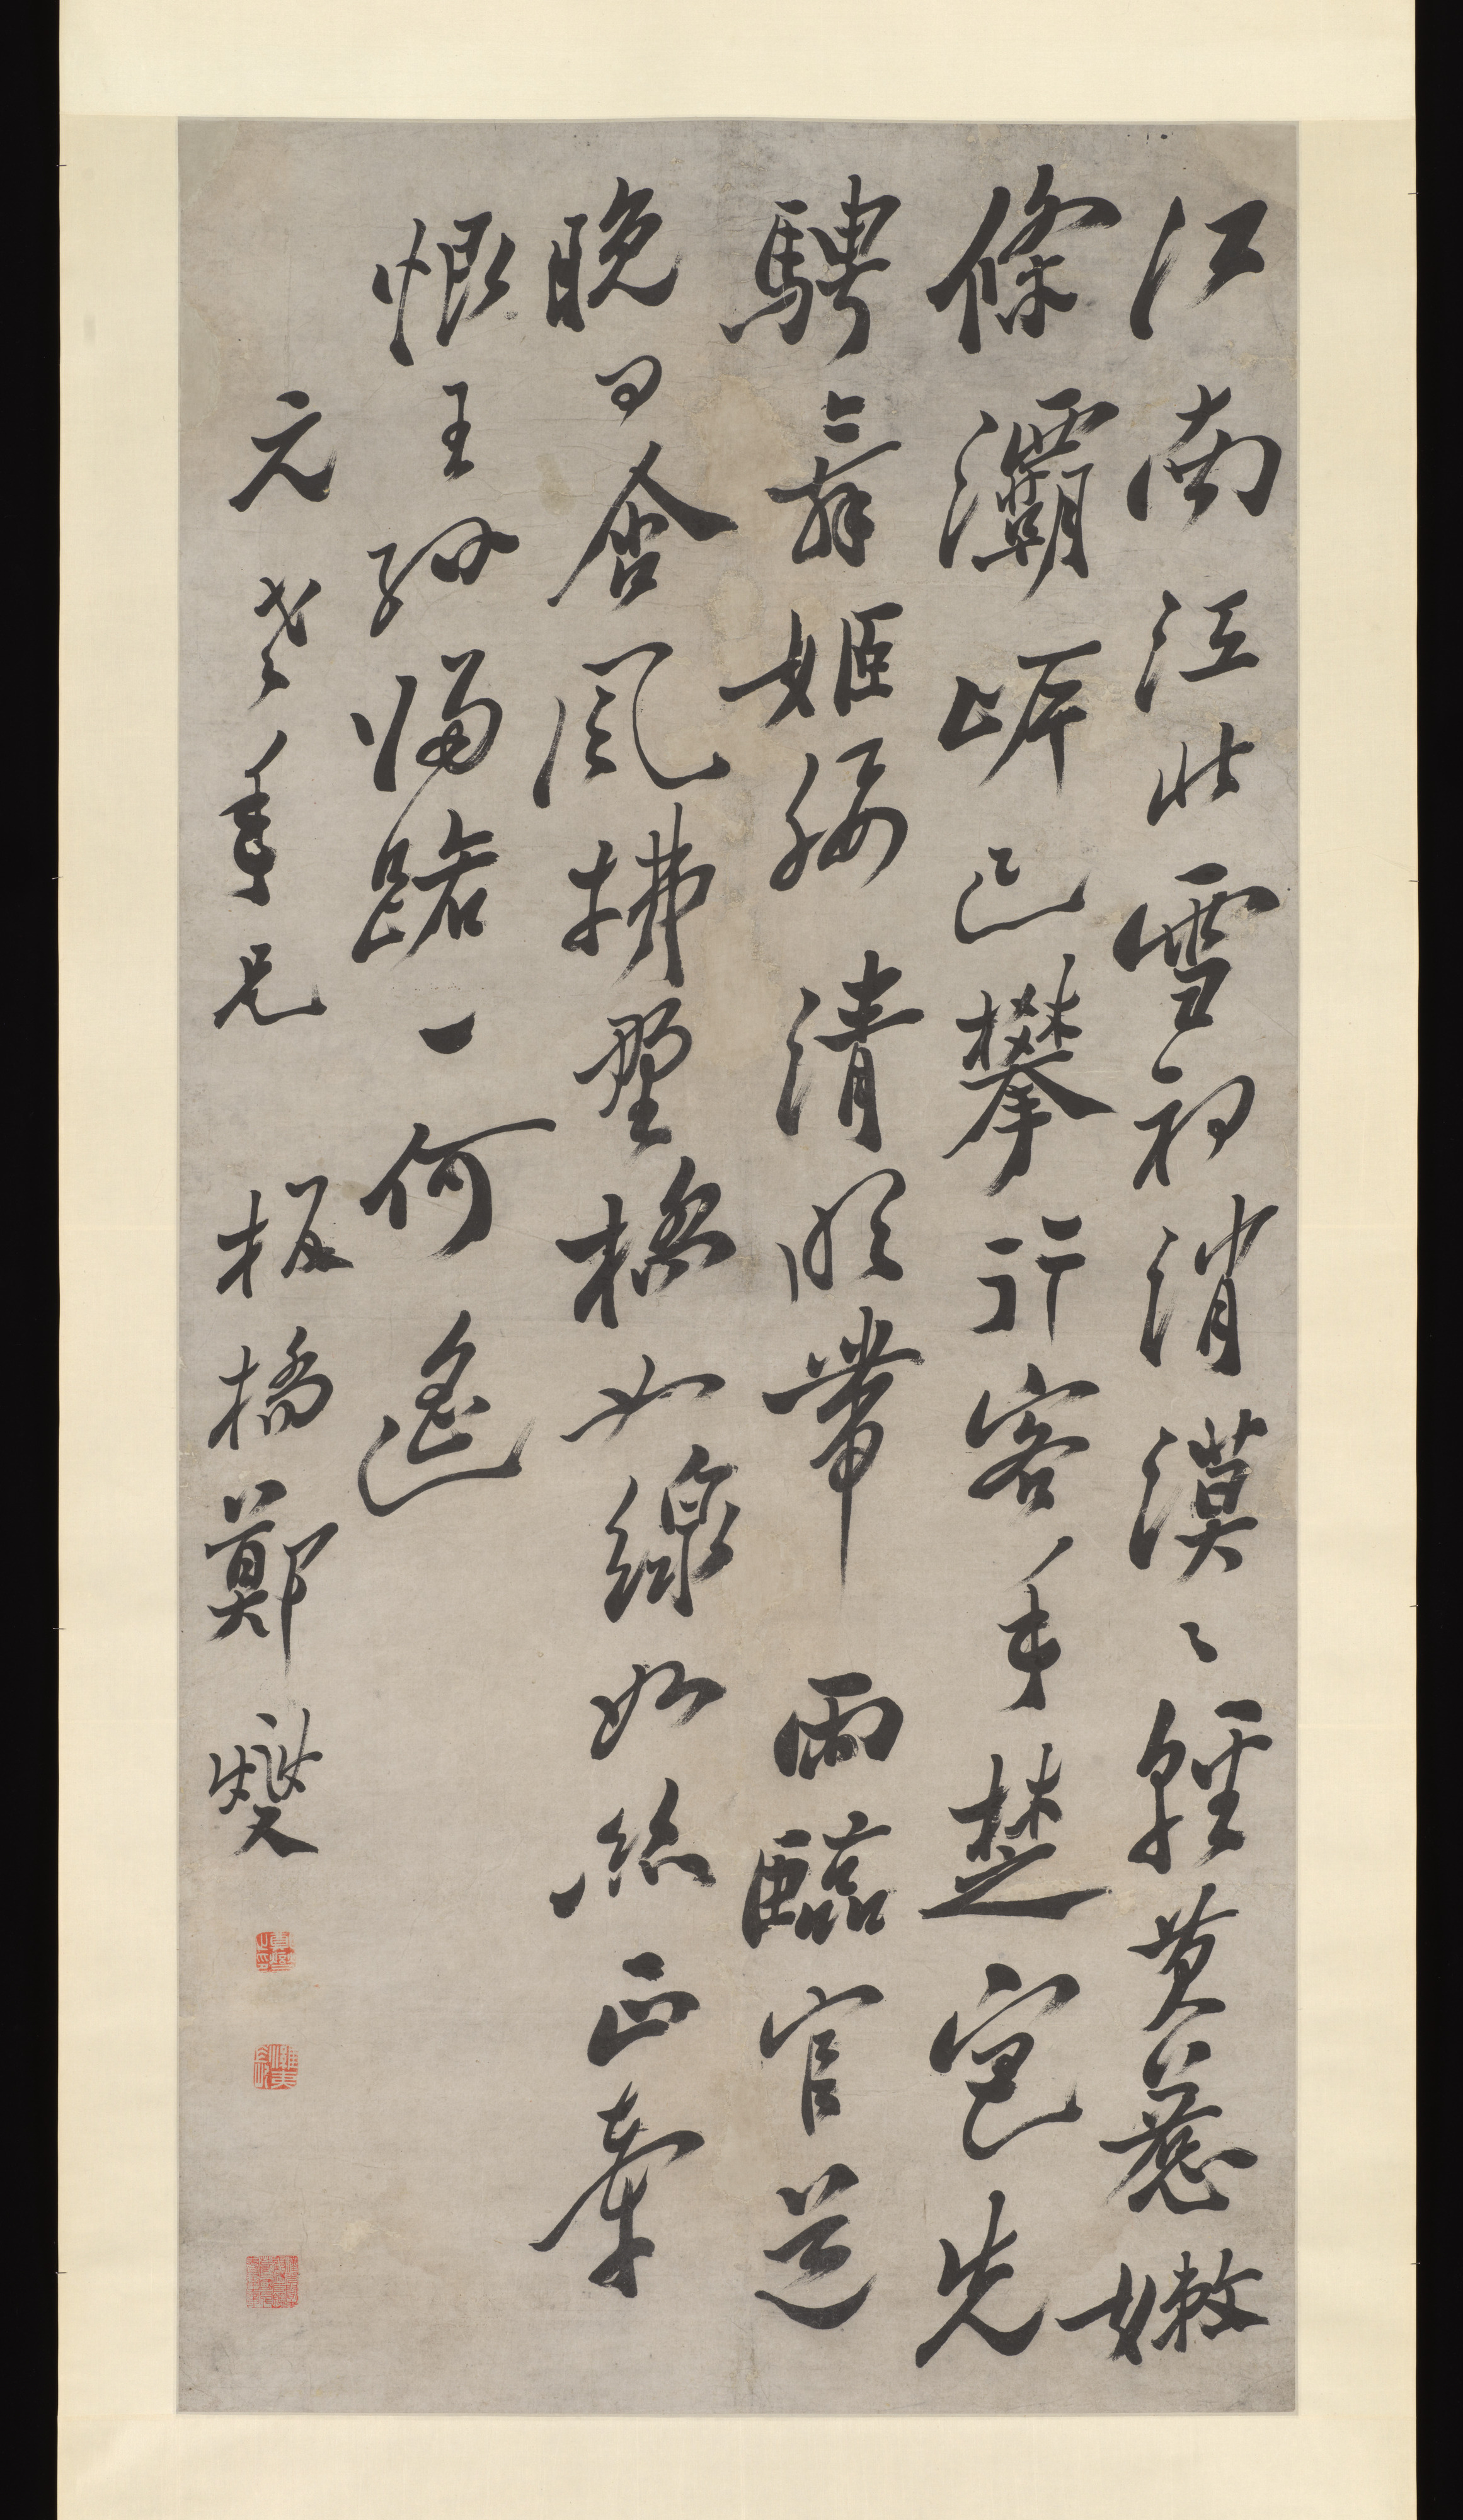 江南江北雪初消漠〻輕黃惹嫩
條灞岸已攀行客手楚宮先
騁舞姬腰清明帶雨臨官道
晚日含風拂野橋如線如絲正牽
恨王孫歸路一何遙
元老年兄 板橋鄭燮
鄭燮之印
濰夷長